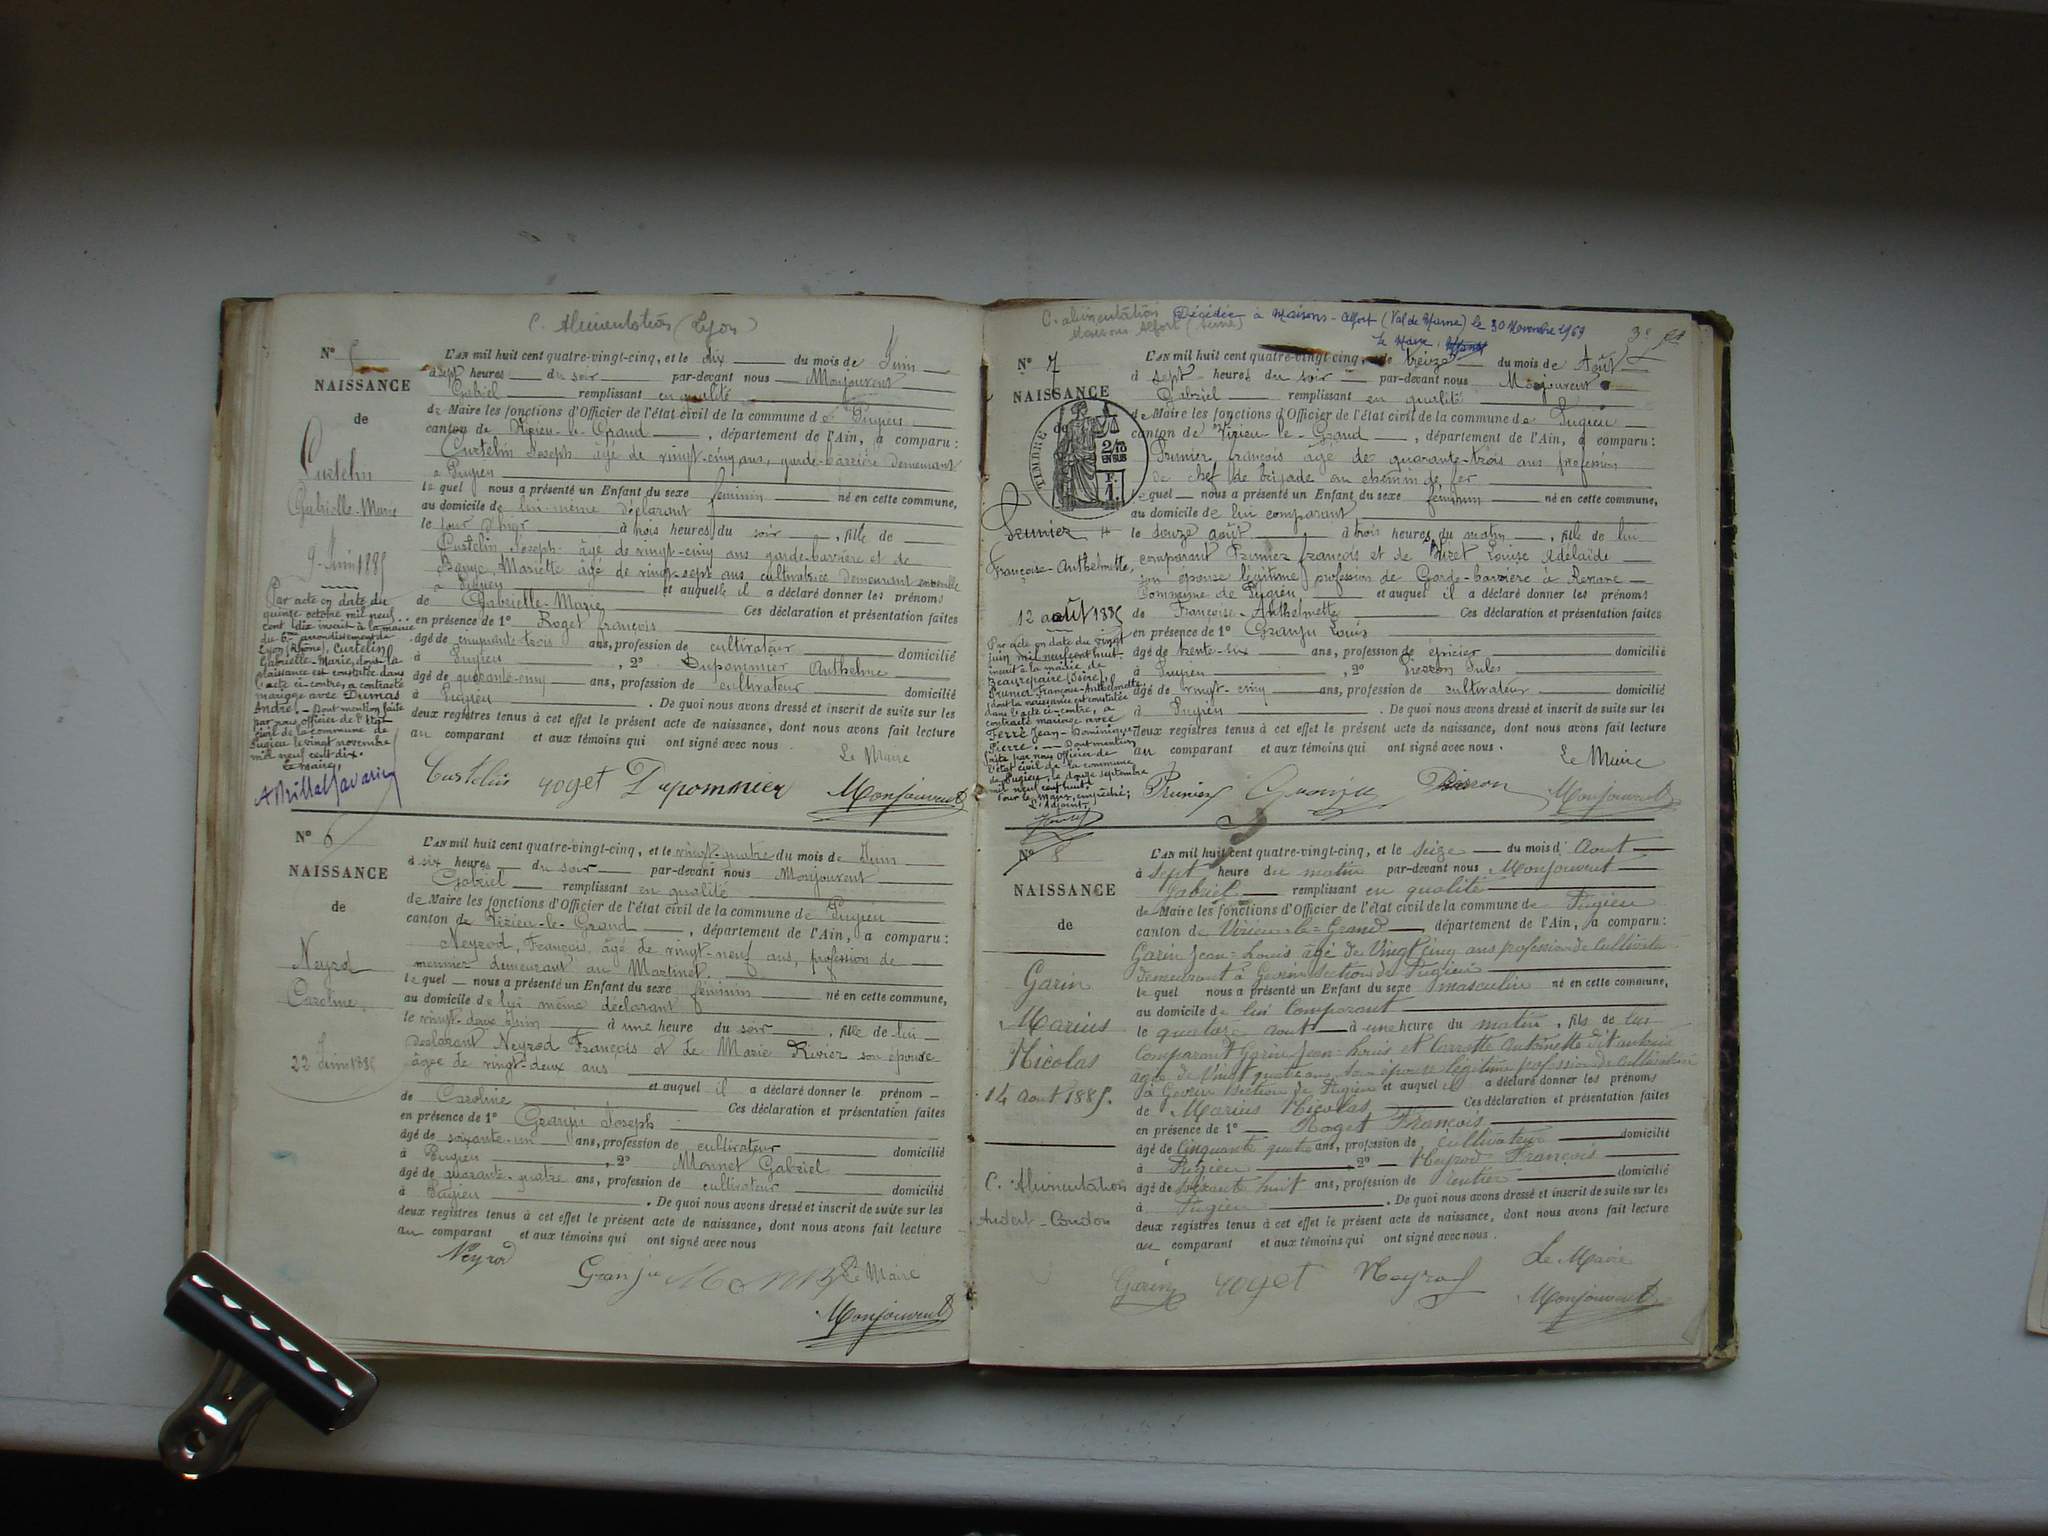 C. Alimentation (Lyon)
N° 5
NAISSANCE
de
Curtelin
Gabrielle-Marie
9 Juin 1885
Par acte en date du
quinze octobre mil neuf
cent dix inscrit à la mairie
du 6me arrondissement de
Lyon (Rhône), Curtelin
Gabrielle-Marie, dont la
naissance est constatée dans
l'acte ci-contre, a contracté
mariage avec Dumas
André. - Dont mention faite
par nous officier de l'état
civil de la commune de
Pugieu le vingt novembre
mil neuf cent dix.
Le maire,
L'AN mil huit cent quatre-vingt-cinq, et le dix du mois de Juin
à sept heures du soir par-devant nous Monjouvent
Gabriel remplissant en qualité
de Maire les fonctions d'Officier de l'état civil de la commune de Pugieu
canton de Virieu-le-Grand, département de l'Ain, a comparu :
Curtelin Joseph âgé de vingt-cinq ans, garde-barrière demeurant
à Pugieu
le quel nous a présenté un Enfant du sexe féminin né en cette commune,
au domicile de lui-même déclarant
le jour d'hier à trois heures du soir, fille de
Curtelin Joseph âgé de vingt-cinq ans garde-barrière et de
Mariette âgé de vingt-sept ans cultivatrice demeurant ensemble
à Pugieu et auquel il a déclaré donner les prénoms
de Gabrielle-Marie Ces déclaration et présentation faites
en présence de 1° Roget françois
âgé de cinquante-trois ans, profession de cultivateur domicilié
à Pugieu, 2° Dupommier Anthelme
âgé de quarante-cinq ans, profession de cultivateur domicilié
à Pugieu. De quoi nous avons dressé et inscrit de suite sur les
deux registres tenus à cet effet le présent acte de naissance, dont nous avons fait lecture
au comparant et aux témoins qui ont signé avec nous
Le Maire
Curtelin roget Dupommier Monjouvent
N° 6
NAISSANCE
de
Neyrod
Caroline
22 Juin 1885
L'AN mil huit cent quatre-vingt-cinq, et le vingt-quatre du mois de Juin
à six heures du soir par-devant nous Monjouvent
Gabriel remplissant en qualité
de Maire les fonctions d'Officier de l'état civil de la commune de Pugieu
canton de Virieu-le-Grand, département de l'Ain, a comparu :
Neyrod, François âgé de vingt-neuf ans, profession de
meunier demeurant au Martinet.
le quel nous a présenté un Enfant du sexe féminin né en cette commune,
au domicile de lui même déclarant
le vingt-deux Juin à une heure du soir, fille de lui
déclarant Neyrod François et de Marie Rivier son épouse
âgée de vingt-deux ans
et auquel il a déclaré donner le prénom
de Caroline Ces déclaration et présentation faites
en présence de 1° Granju Joseph
âgé de soixante-un ans, profession de cultivateur domicilié
à Pugieu, 2° Monnet Gabriel
âgé de quarante-quatre ans, profession de cultivateur domicilié
à Pugieu. De quoi nous avons dressé et inscrit de suite sur les
deux registres tenus à cet effet le présent acte de naissance, dont nous avons fait lecture
au comparant et aux témoins qui ont signé avec nous
Neyrod
Granju Le Maire
Monjouvent
C. alimentation Décédée à Maisons-Alfort (Val de Marne) le 30 Novembre 1969
Maisons Alfort (Seine) Le Maire,
N° 7
NAISSANCE
de
TIMBRE
2/10
EN SUS
F.
1.
Prunier
Françoise-Anthelmette,
12 août 1885
Par acte en date du vingt
juin mil neuf cent huit
inscrit à la mairie de
Beaurepaire (Isère),
Prunier Françoise-Anthelmette
dont la naissance est constatée
dans l'acte ci-contre, a
contracté mariage avec
Ferre Jean-Dominique
Pierre. - Dont mention
faite par nous officier de
l'état civil de la commune
de Pugieu, le douze septembre
mil neuf cent huit.
Pour le Maire, empêché;
L'Adjoint,
L'AN mil huit cent quatre-vingt-cinq, le treize du mois de Août
à sept heures du soir par-devant nous Monjouvent
Gabriel remplissant en qualité
de Maire les fonctions d'Officier de l'état civil de la commune de Pugieu
canton de Virieu-le-Grand, département de l'Ain, a comparu :
Prunier, françois âgé de quarante-trois ans profession
de chef de brigade au chemin de fer
le quel nous a présenté un Enfant du sexe féminin né en cette commune,
au domicile de lui comparant
le douze août à trois heures du matin, fille de lui
comparant Prunier françois et de Louise Adélaïde
son épouse légitime profession de Garde-barrière à
Commune de Pugieu et auquel il a déclaré donner les prénoms
de Françoise-Anthelmette Ces déclaration et présentation faites
en présence de 1° Granju Louis
âgé de trente-six ans, profession de épicier domicilié
à Pugieu, 2° Jules
âgé de vingt-cinq ans, profession de cultivateur domicilié
à Pugieu. De quoi nous avons dressé et inscrit de suite sur les
deux registres tenus à cet effet le présent acte de naissance, dont nous avons fait lecture
au comparant et aux témoins qui ont signé avec nous.
Le Maire
Prunier Granju Monjouvent
N° 8
NAISSANCE
de
Garin
Marius
Nicolas
14 aout 1885.
C. Alimentation
Andert-Condon
L'AN mil huit cent quatre-vingt-cinq, et le seize du mois d'Aout
à sept heure du matin par-devant nous Monjouvent
Gabriel remplissant en qualité
de Maire les fonctions d'Officier de l'état civil de la commune de Pugieu
canton de Virieu-le-Grand, département de l'Ain, a comparu :
Garin Jean-Louis âgé de Vingt cinq ans profession de cultivateur
demeurant à section de Pugieu
le quel nous a présenté un Enfant du sexe masculin né en cette commune,
au domicile de lui comparant
le quatorze aout à une heure du matin, fils de lui
comparant Garin Jean-Louis et Antoinette dit
âgée de Vingt quatre ans son épouse légitime profession de cultivatrice
à section de Pugieu et auquel il a déclaré donner les prénoms
de Marius Nicolas Ces déclaration et présentation faites
en présence de 1° Roget François
âgé de cinquante quatre ans, profession de cultivateur domicilié
à Pugieu 2° Neyrod François
âgé de soixante huit ans, profession de rentier domicilié
à Pugieu. De quoi nous avons dressé et inscrit de suite sur les
deux registres tenus à cet effet le présent acte de naissance, dont nous avons fait lecture
au comparant et aux témoins qui ont signé avec nous.
Le Maire
Garin roget Neyrod Monjouvent